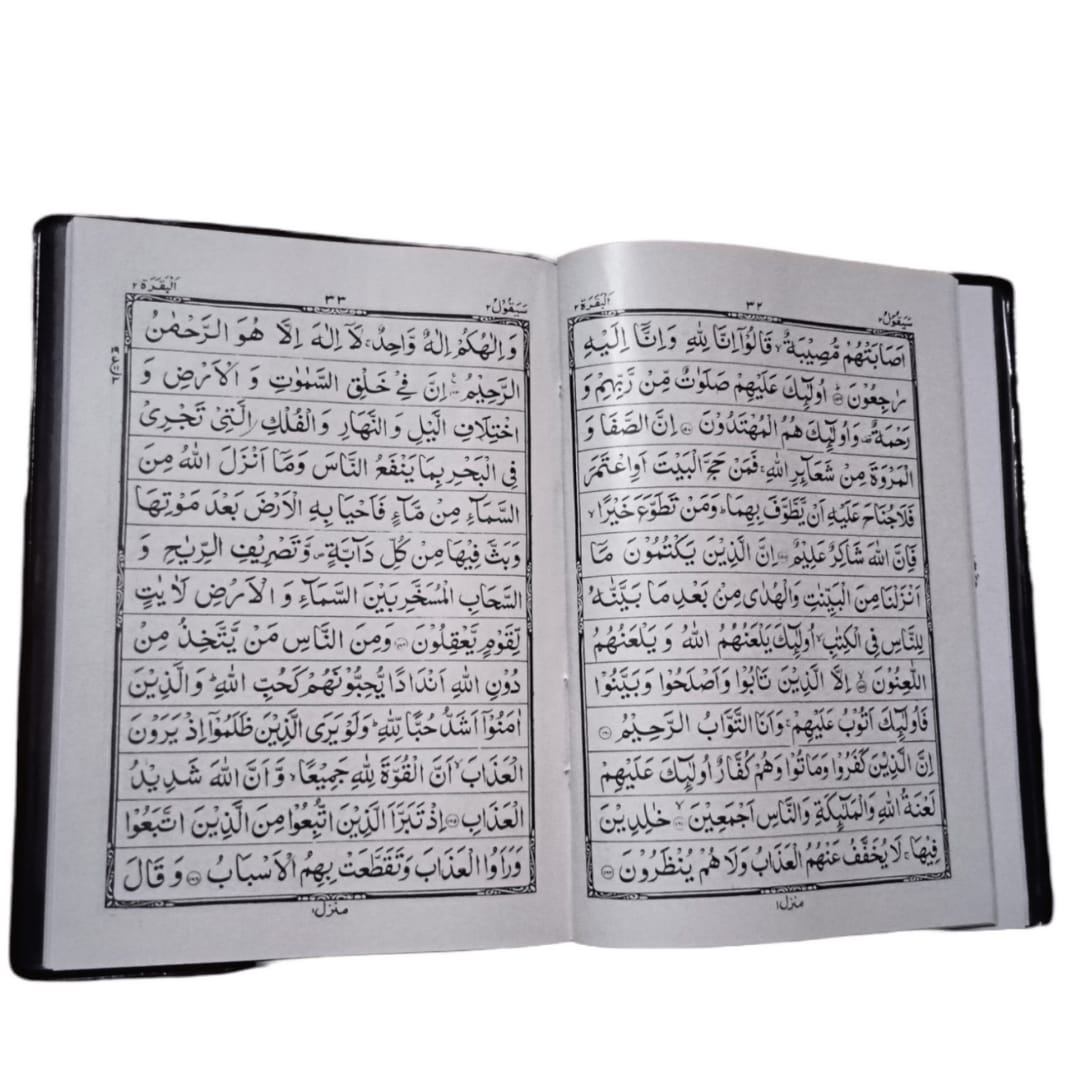 سَيَقُوْلُ ٢
٣٢
اَلْبَقَرَة ٢
اَصَابَتْهُمْ مُّصِيْبَةٌ ۙ قَالُوْۤا اِنَّا لِلّٰهِ وَاِنَّاۤ اِلَيْهِ
رٰجِعُوْنَ ؕ ۝۱۵۶ اُولٰٓئِكَ عَلَيْهِمْ صَلَوٰتٌ مِّنْ رَّبِّهِمْ وَ
رَحْمَةٌ ۟ وَاُولٰٓئِكَ هُمُ الْمُهْتَدُوْنَ ۝۱۵۷ اِنَّ الصَّفَا وَ
الْمَرْوَةَ مِنْ شَعَآئِرِ اللّٰهِ ۚ فَمَنْ حَجَّ الْبَيْتَ اَوِاعْتَمَرَ
فَلَاجُنَاحَ عَلَيْهِ اَنْ يَّطَّوَّفَ بِهِمَا ؕ وَمَنْ تَطَوَّعَ خَيْرًا ۙ
فَاِنَّ اللّٰهَ شَاكِرٌ عَلِيْمٌ ۝۱۵۸ اِنَّ الَّذِيْنَ يَكْتُمُوْنَ مَاۤ
اَنْزَلْنَا مِنَ الْبَيِّنٰتِ وَالْهُدٰى مِنْۢ بَعْدِ مَا بَيَّنّٰهُ
لِلنَّاسِ فِى الْكِتٰبِ ۙ اُولٰٓئِكَ يَلْعَنُهُمُ اللّٰهُ وَ يَلْعَنُهُمُ
اللّٰعِنُوْنَ ۙ ۝۱۵۹ اِلَّا الَّذِيْنَ تَابُوْا وَاَصْلَحُوْا وَبَيَّنُوْا
فَاُولٰٓئِكَ اَتُوْبُ عَلَيْهِمْ ۚ وَاَنَا التَّوَّابُ الرَّحِيْمُ ۝۱۶۰
اِنَّ الَّذِيْنَ كَفَرُوْا وَمَاتُوْا وَهُمْ كُفَّارٌ اُولٰٓئِكَ عَلَيْهِمْ
لَعْنَةُ اللّٰهِ وَالْمَلٰٓئِكَةِ وَالنَّاسِ اَجْمَعِيْنَ ۙ ۝۱۶۱ خٰلِدِيْنَ
فِيْهَا ۚ لَا يُخَفَّفُ عَنْهُمُ الْعَذَابُ وَلَا هُمْ يُنْظَرُوْنَ ۝۱۶۲
منزل ۱
سَيَقُوْلُ ٢
٣٣
اَلْبَقَرَة ٢
وَاِلٰهُكُمْ اِلٰهٌ وَّاحِدٌ ۚ لَاۤ اِلٰهَ اِلَّا هُوَ الرَّحْمٰنُ
الرَّحِيْمُ ۝۱۶۳ اِنَّ فِيْ خَلْقِ السَّمٰوٰتِ وَ الْاَرْضِ وَ
اخْتِلَافِ الَّيْلِ وَالنَّهَارِ وَالْفُلْكِ الَّتِيْ تَجْرِيْ
فِى الْبَحْرِ بِمَا يَنْفَعُ النَّاسَ وَمَاۤ اَنْزَلَ اللّٰهُ مِنَ
السَّمَآءِ مِنْ مَّآءٍ فَاَحْيَا بِهِ الْاَرْضَ بَعْدَ مَوْتِهَا
وَبَثَّ فِيْهَا مِنْ كُلِّ دَآبَّةٍ ۪ وَّتَصْرِيْفِ الرِّيٰحِ وَ
السَّحَابِ الْمُسَخَّرِ بَيْنَ السَّمَآءِ وَ الْاَرْضِ لَاٰيٰتٍ
لِّقَوْمٍ يَّعْقِلُوْنَ ۝۱۶۴ وَمِنَ النَّاسِ مَنْ يَّتَّخِذُ مِنْ
دُوْنِ اللّٰهِ اَنْدَادًا يُّحِبُّوْنَهُمْ كَحُبِّ اللّٰهِ ؕ وَالَّذِيْنَ
اٰمَنُوْۤا اَشَدُّ حُبًّا لِّلّٰهِ ؕ وَلَوْ يَرَى الَّذِيْنَ ظَلَمُوْۤا اِذْ يَرَوْنَ
الْعَذَابَ ۙ اَنَّ الْقُوَّةَ لِلّٰهِ جَمِيْعًا ۙ وَّاَنَّ اللّٰهَ شَدِيْدُ
الْعَذَابِ ۝۱۶۵ اِذْ تَبَرَّاَ الَّذِيْنَ اتُّبِعُوْا مِنَ الَّذِيْنَ اتَّبَعُوْا
وَرَاَوُا الْعَذَابَ وَتَقَطَّعَتْ بِهِمُ الْاَسْبَابُ ۝۱۶۶ وَقَالَ
منزل ۱